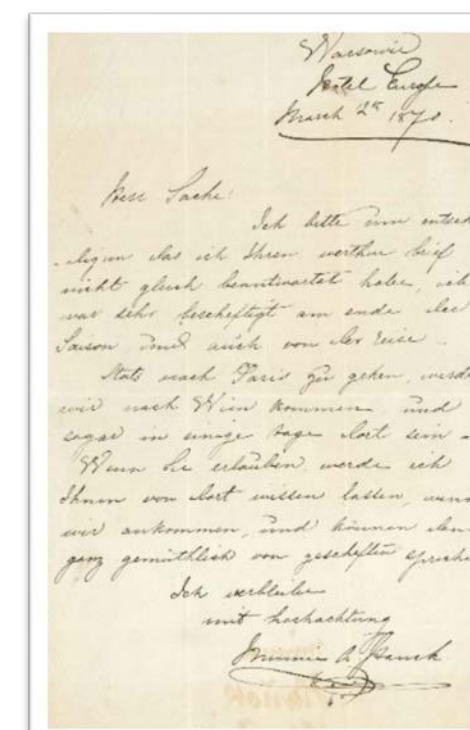 Warsowie
Hotel Europe
March 2 1870.
Herr Sachse:
Ich bitte um entsch
-ligun das ich Ihren werthen brief
nicht gleich beantwortet habe, ich
war sehr bescheftigt am ende der
Saison und auch von der reise.
Stats nach Paris zu gehen, werde
wir nach Wien kommen und
sogar in einige tage dort sein.
Wenn Sie erlauben, werde ich
Ihnen von dort wissen lassen, wenn
wir ankommen, und können
ganz gemüthlich von gescheften spreche
Ich verbleibe
mit hochachtung
Minnie Hauck